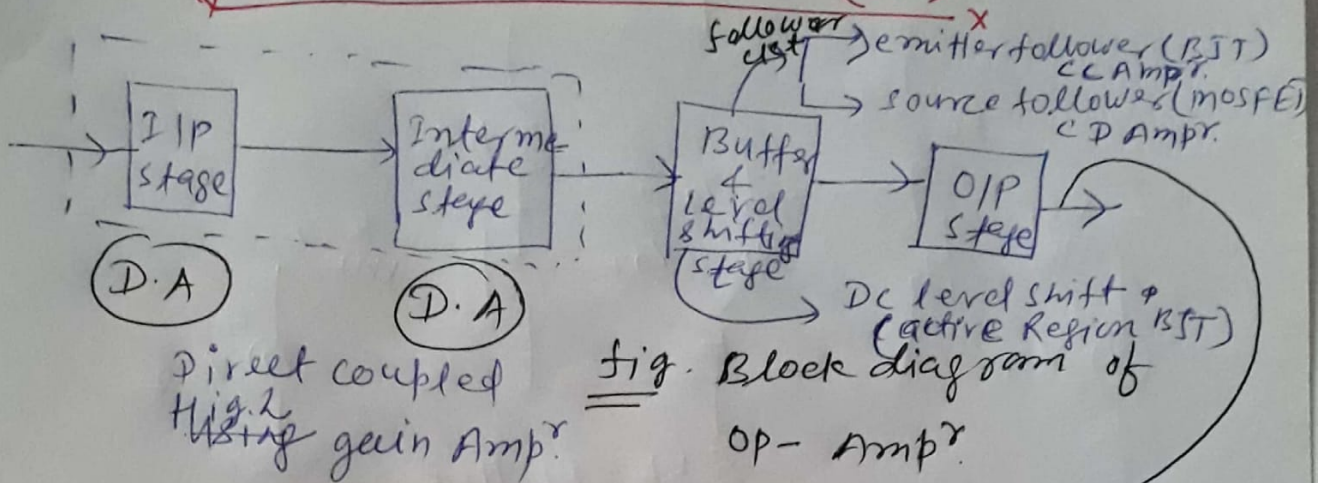 follower
ckt
emitter follower (BJT)
CC Ampr.
source follower (MOSFET)
CD Ampr.
I/P
stage
Interme-
diate
stage
Buffer
&
Level
shifting
stage
O/P
stage
D.A
D.A
DC level shift
(active Region BJT)
Direct coupled
gain Ampr.
fig. Block diagram of
Op- Ampr.